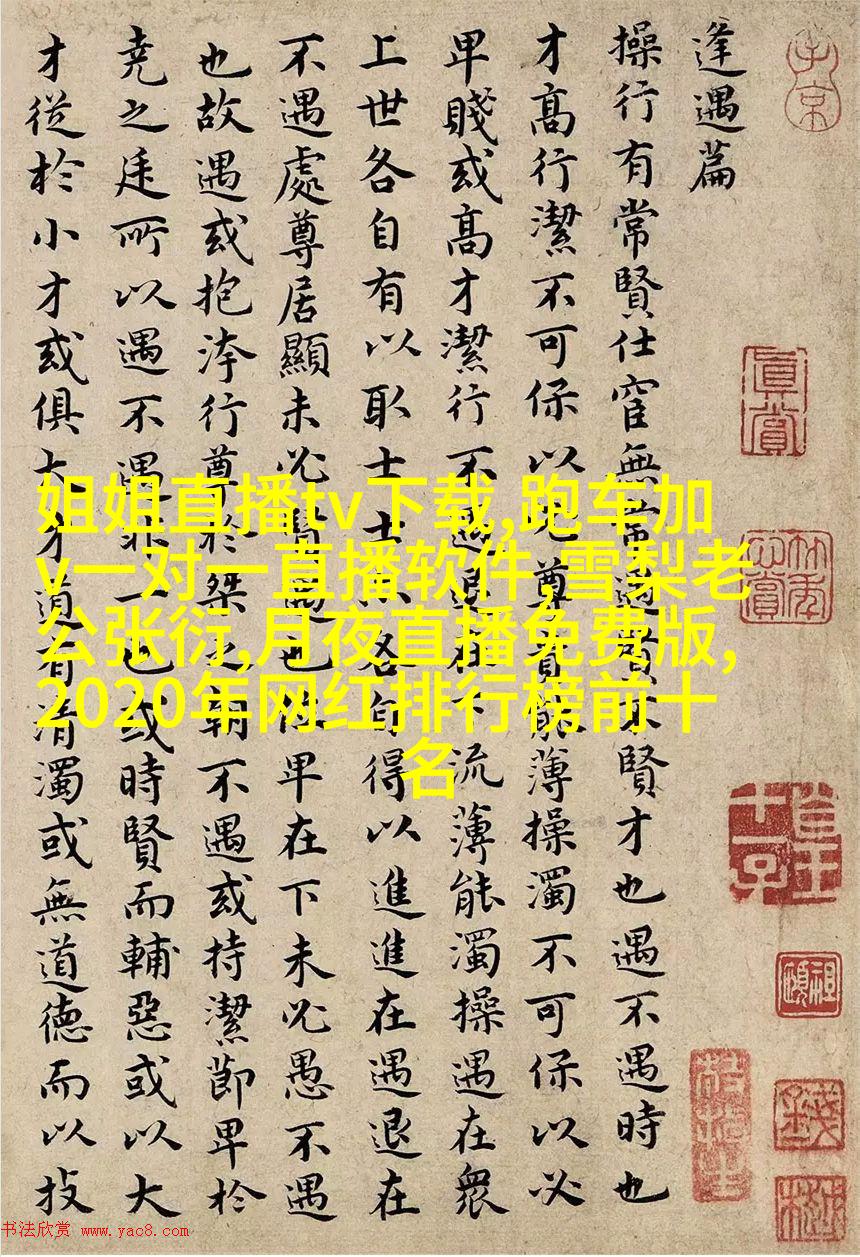 子京
真賞
逢遇篇
操行有常賢仕宦無常遇賢不賢才也遇不遇時也
才高行潔不可保以必尊貴能薄操濁不可保以必
卑賤或高才潔行不遇退在下流薄能濁操遇在衆
上世各自有以取士士亦各自得以進進在遇退在
不遇處尊居顯未必賢遇也位卑在下未必愚不遇
也故遇或抱洿行尊於桀之朝不遇或持潔節卑於
堯之廷所以遇不遇非一也或時賢而輔惡或以大
才從於小才或俱大才道有清濁或無道德而以技
姐姐直播tv下载,跑车加
v一对一直播软件,雪梨老
公张衍,月夜直播免费版,
2020年网红排行榜前十
名
书法欣赏 www.yac8.com